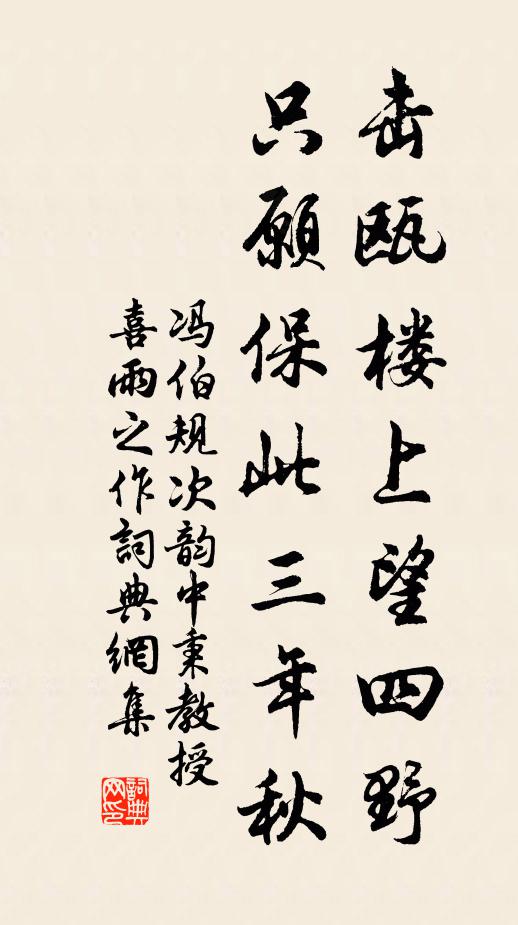 击瓯楼上望四野
只愿保此三年秋
冯伯规次韵中秉教授
喜雨之作詞典網集
詞典网印